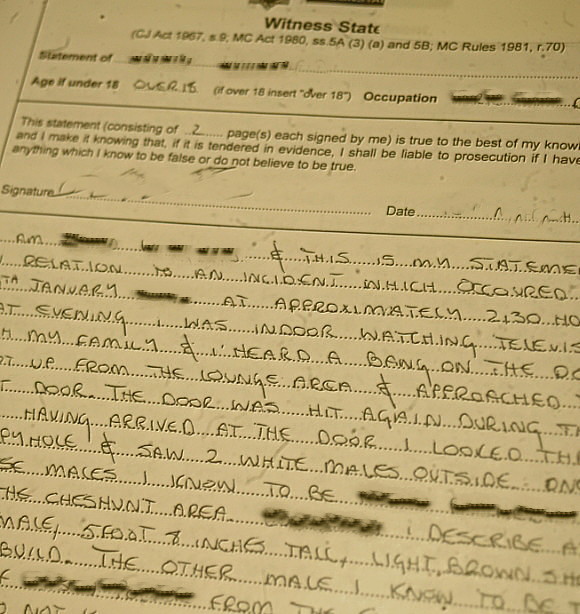 Witness State
(CJ Act 1967, s.9; MC Act 1980, ss.5A (3) (a) and 5B; MC Rules 1981, r.70)
Statement of
Age if under 18 OVER 18 (if over 18 insert "over 18") Occupation
This statement (consisting of ..2..... page(s) each signed by me) is true to the best of my knowl
and I make it knowing that, if it is tendered in evidence, I shall be liable to prosecution if I have
anything which I know to be false or do not believe to be true.
Signature
Date
AM & THIS IS MY STATEME
RELATION TO AN INCIDENT WHICH OCCOURED
TH JANUARY AT APPROXIMATELY 2130 HO
AT EVENING I WAS INDOOR WATCHING TELEVIS
H MY FAMILY & I HEARD A BANG ON THE DO
OT UP FROM THE LOUNGE AREA & APPROACHED
T DOOR. THE DOOR WAS HIT AGAIN DURING T
HAVING ARRIVED AT THE DOOR I LOOKED TH
PYHOLE & SAW 2 WHITE MALES OUTSIDE. ON
SE MALES I KNOW TO BE
THE CHESHUNT AREA. I DESCRIBE A
MALE, 5 FOOT 8 INCHES TALL, LIGHT BROWN SH
BUILD. THE OTHER MALE I KNOW TO BE
F FROM THE
NOT